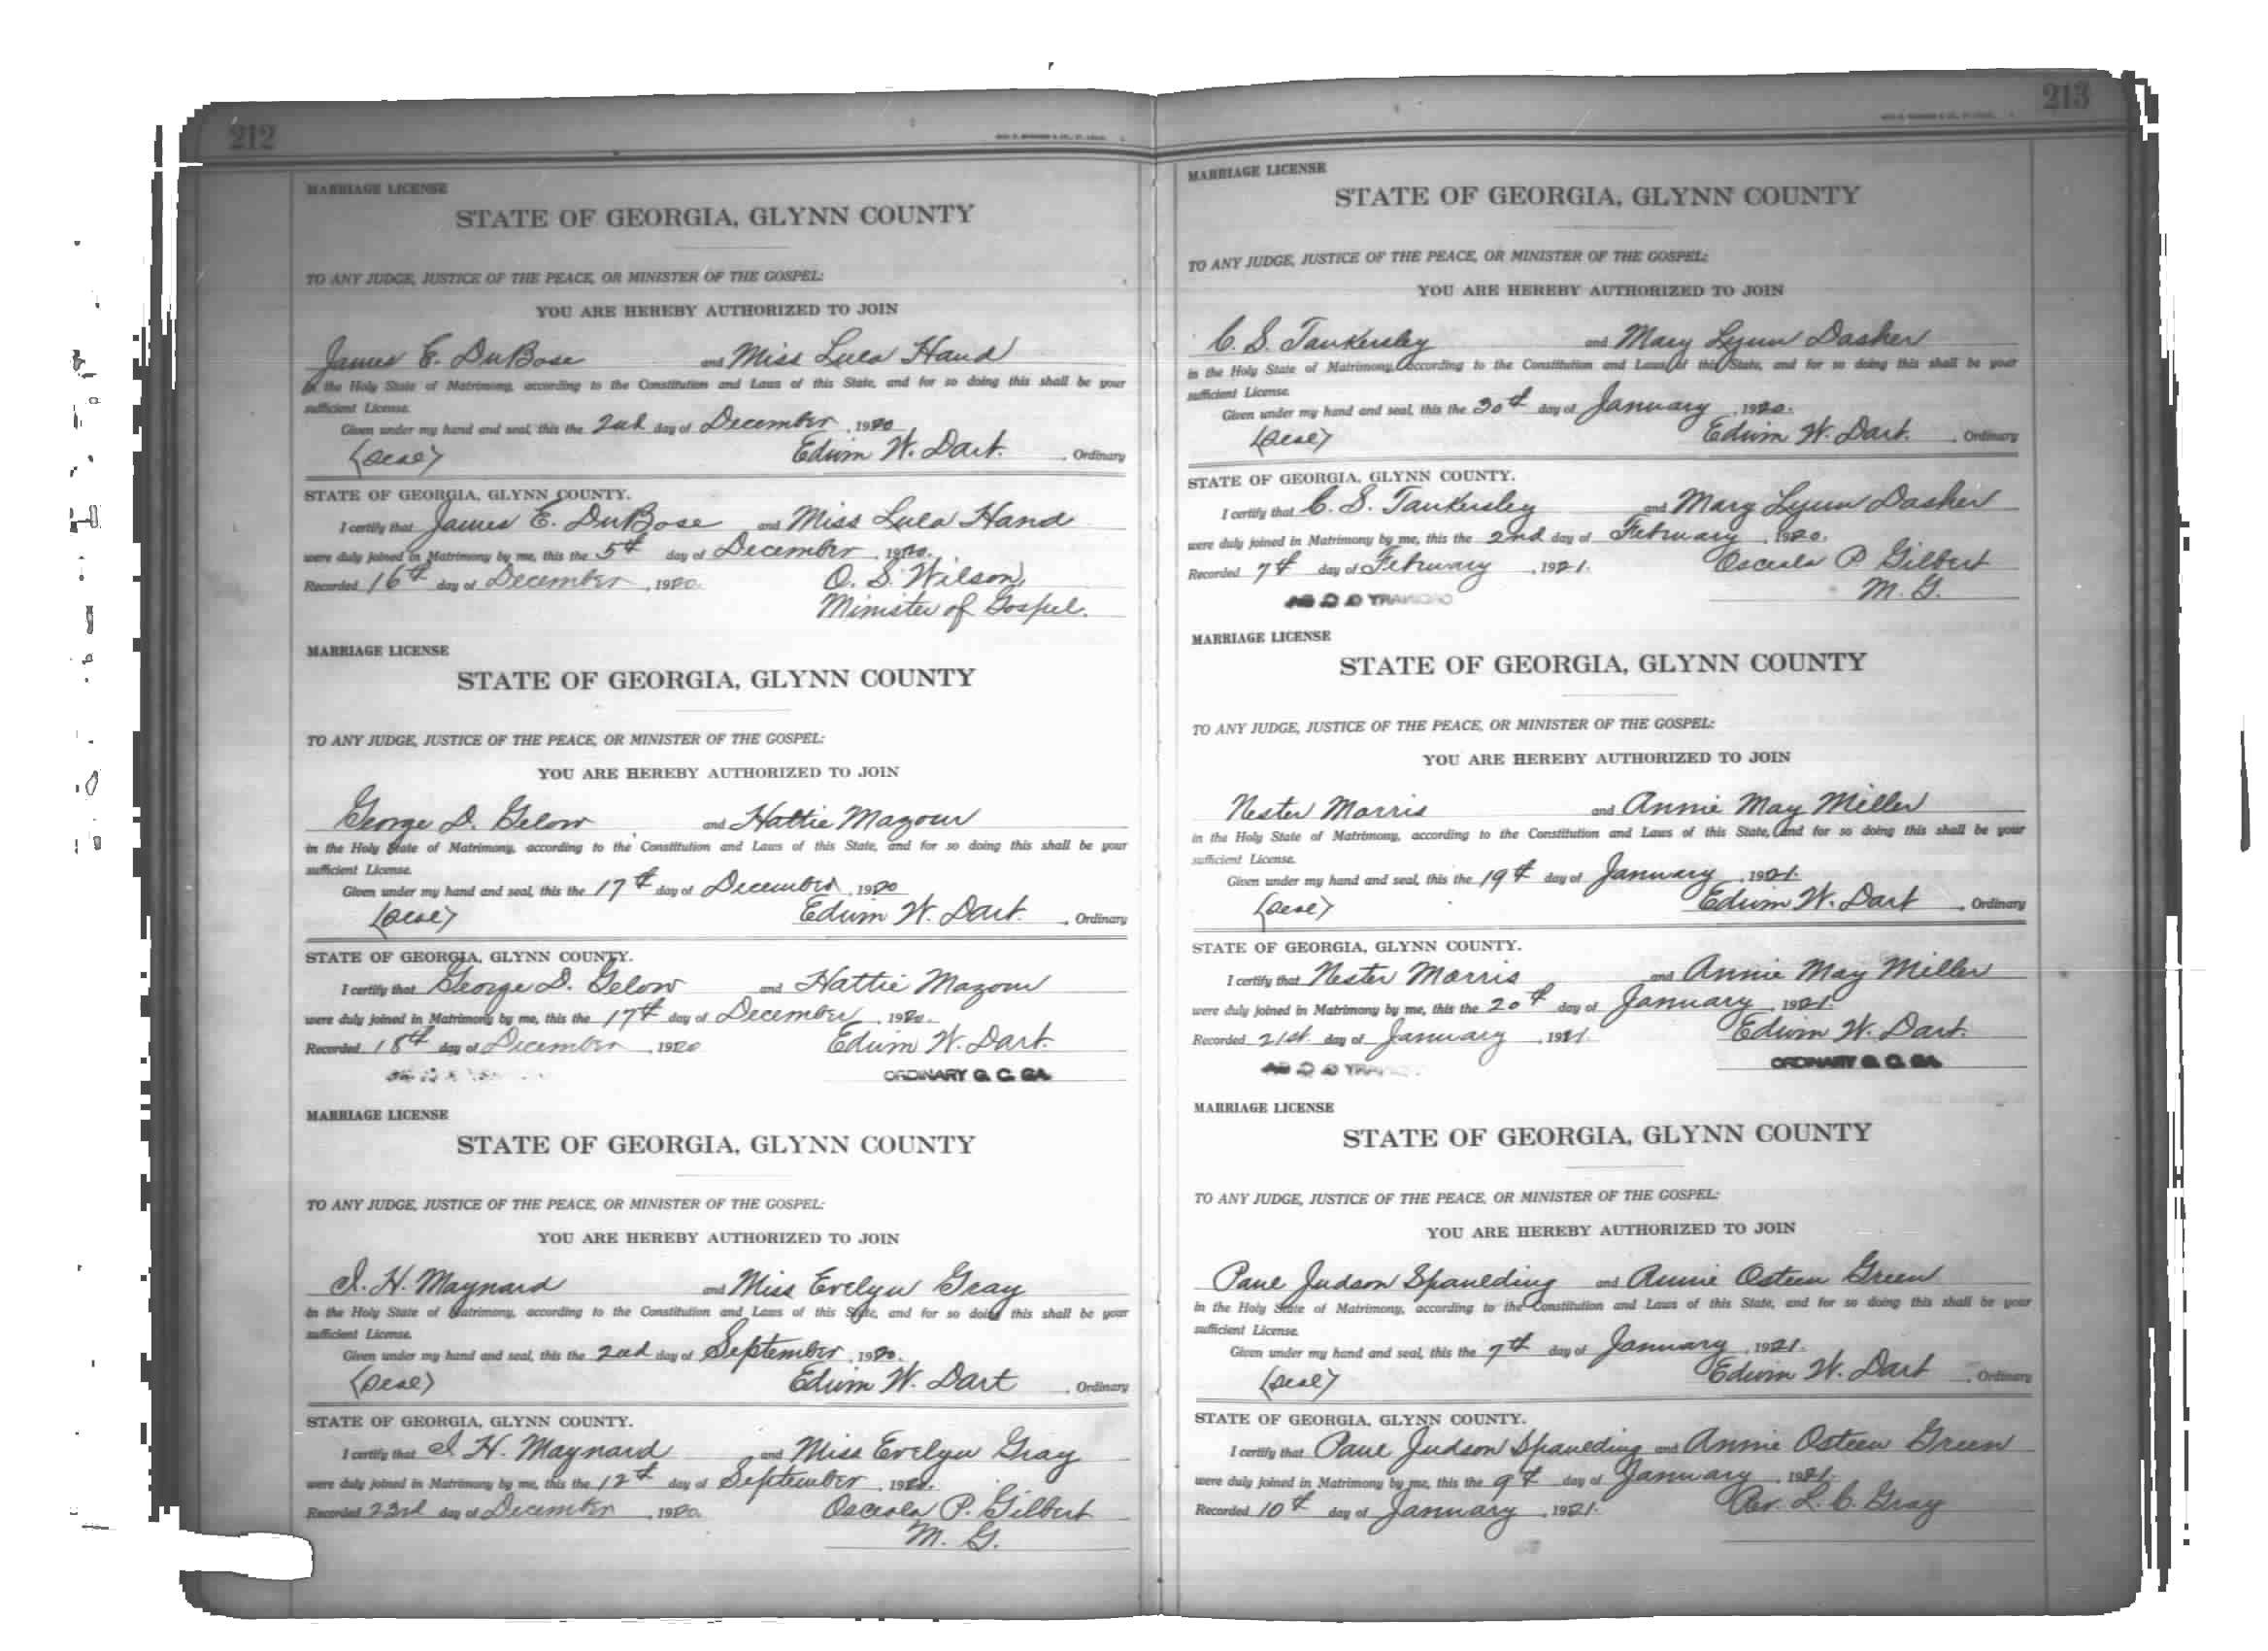 212
MARRIAGE LICENSE
STATE OF GEORGIA, GLYNN COUNTY
TO ANY JUDGE, JUSTICE OF THE PEACE, OR MINISTER OF THE GOSPEL:
YOU ARE HEREBY AUTHORIZED TO JOIN
James E. DuBose and Miss Lula Hand
in the Holy State of Matrimony, according to the Constitution and Laws of this State, and for so doing this shall be your
sufficient License.
Given under my hand and seal, this the 2nd day of December, 1920
(Seal) Edwin W. Dart. , Ordinary
STATE OF GEORGIA, GLYNN COUNTY.
I certify that James E. DuBose and Miss Lula Hand
were duly joined in Matrimony by me, this the 5th day of December, 1920.
Recorded 16th day of December, 1920. O. S. Wilson,
Minister of Gospel.
MARRIAGE LICENSE
STATE OF GEORGIA, GLYNN COUNTY
TO ANY JUDGE, JUSTICE OF THE PEACE, OR MINISTER OF THE GOSPEL:
YOU ARE HEREBY AUTHORIZED TO JOIN
George D. Gelow and Hattie Mazour
in the Holy State of Matrimony, according to the Constitution and Laws of this State, and for so doing this shall be your
sufficient License.
Given under my hand and seal, this the 17th day of December, 1920
(Seal) Edwin W. Dart. , Ordinary
STATE OF GEORGIA, GLYNN COUNTY.
I certify that George D. Gelow and Hattie Mazour
were duly joined in Matrimony by me, this the 17th day of December, 1920.
Recorded 18th day of December, 1920 Edwin W. Dart.
ORDINARY G. C. GA.
MARRIAGE LICENSE
STATE OF GEORGIA, GLYNN COUNTY
TO ANY JUDGE, JUSTICE OF THE PEACE, OR MINISTER OF THE GOSPEL:
YOU ARE HEREBY AUTHORIZED TO JOIN
I. H. Maynard and Miss Evelyn Gray
in the Holy State of Matrimony, according to the Constitution and Laws of this State, and for so doing this shall be your
sufficient License.
Given under my hand and seal, this the 2nd day of September, 1920.
(Seal) Edwin W. Dart , Ordinary
STATE OF GEORGIA, GLYNN COUNTY.
I certify that I. H. Maynard and Miss Evelyn Gray
were duly joined in Matrimony by me, this the 12th day of September, 1920.
Recorded 23rd day of December, 1920. Osceola P. Gilbert
M. G.
213
MARRIAGE LICENSE
STATE OF GEORGIA, GLYNN COUNTY
TO ANY JUDGE, JUSTICE OF THE PEACE, OR MINISTER OF THE GOSPEL:
YOU ARE HEREBY AUTHORIZED TO JOIN
C. S. Tankersley and Mary Lynn Dasher
in the Holy State of Matrimony, according to the Constitution and Laws of this State, and for so doing this shall be your
sufficient License.
Given under my hand and seal, this the 30th day of January, 1920.
(Seal) Edwin W. Dart. , Ordinary
STATE OF GEORGIA, GLYNN COUNTY.
I certify that C. S. Tankersley and Mary Lynn Dasher
were duly joined in Matrimony by me, this the 2nd day of February, 1920.
Recorded 7th day of February, 1921. Osceola P. Gilbert
M. G.
MARRIAGE LICENSE
STATE OF GEORGIA, GLYNN COUNTY
TO ANY JUDGE, JUSTICE OF THE PEACE, OR MINISTER OF THE GOSPEL:
YOU ARE HEREBY AUTHORIZED TO JOIN
Nester Morris and Annie May Miller
in the Holy State of Matrimony, according to the Constitution and Laws of this State, and for so doing this shall be your
sufficient License.
Given under my hand and seal, this the 19th day of January, 1921.
(Seal) Edwin W. Dart , Ordinary
STATE OF GEORGIA, GLYNN COUNTY.
I certify that Nester Morris and Annie May Miller
were duly joined in Matrimony by me, this the 20th day of January, 1921.
Recorded 21st. day of January, 1921. Edwin W. Dart.
ORDINARY G. C. GA.
MARRIAGE LICENSE
STATE OF GEORGIA, GLYNN COUNTY
TO ANY JUDGE, JUSTICE OF THE PEACE, OR MINISTER OF THE GOSPEL:
YOU ARE HEREBY AUTHORIZED TO JOIN
Paul Judson Spaulding and Annie Osteen Green
in the Holy State of Matrimony, according to the Constitution and Laws of this State, and for so doing this shall be your
sufficient License.
Given under my hand and seal, this the 7th day of January, 1921.
(Seal) Edwin W. Dart , Ordinary
STATE OF GEORGIA, GLYNN COUNTY.
I certify that Paul Judson Spaulding and Annie Osteen Green
were duly joined in Matrimony by me, this the 9th day of January, 1921.
Recorded 10th day of January, 1921. Rev. L. C. Gray